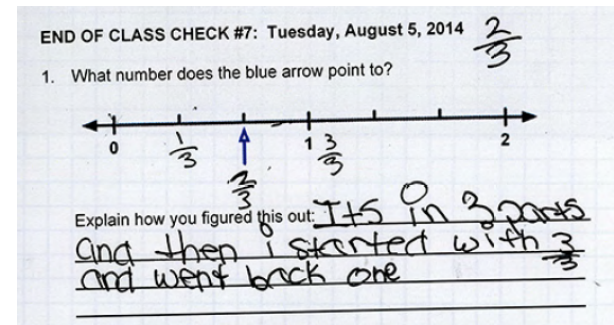 END OF CLASS CHECK #7: Tuesday, August 5, 2014 2/3
1. What number does the blue arrow point to?
0 1/3 2/3 1 3/3 2
Explain how you figured this out: Its in 3 parts
and then i started with 3/3
and went back one